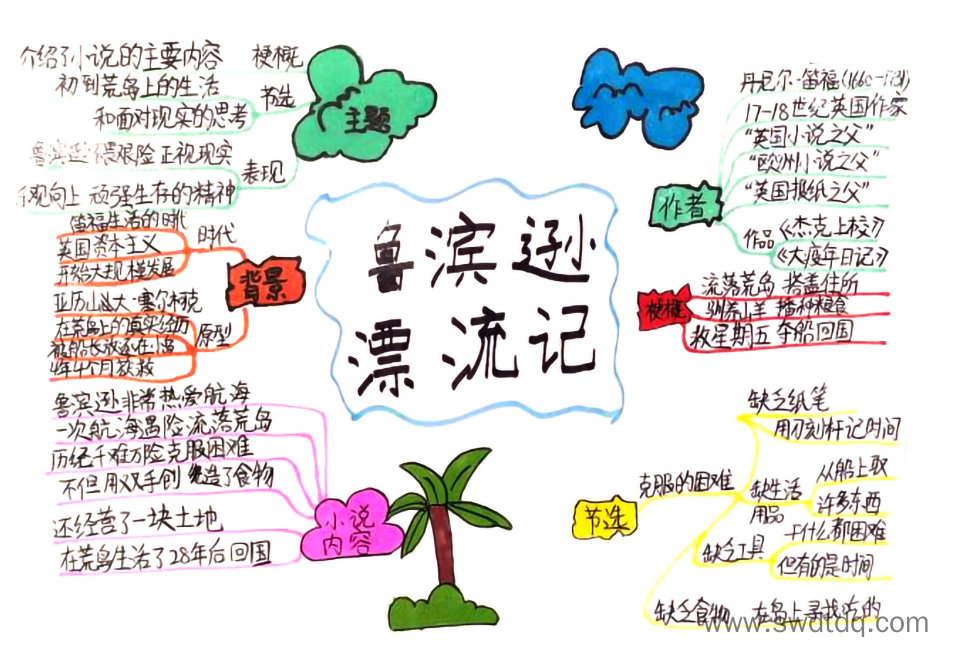 鲁滨逊
漂流记
主题
梗概
介绍了小说的主要内容
节选
初到荒岛上的生活
和面对现实的思考
表现
鲁滨逊 畏艰险 正视现实
观向上 顽强生存的精神
背景
时代
笛福生活的时代
英国资本主义
开始大规模发展
原型
亚历山大·塞尔柯克
在荒岛上的真实经历
被船长放逐在
4年4个月获救
小说
内容
鲁滨逊非常热爱航海
一次航海遇险流落荒岛
历经千难万险克服困难
不但用双手创造了食物
还经营了一块土地
在荒岛生活了28年后回国
作者
丹尼尔·笛福(1660-1731)
17-18世纪英国作家
“英国小说之父”
“欧洲小说之父”
“英国报纸之父”
作品
《杰克上校》
《大疫年日记》
梗概
流落荒岛 搭盖住所
驯养山羊 播种粮食
救星期五 夺船回国
节选
克服的困难
缺乏纸笔
用刀刻杆记时间
缺生活
用品
从船上取
许多东西
缺乏工具
干什么都困难
但有的是时间
缺乏食物 在岛上寻找吃的
www.swdtdq.com